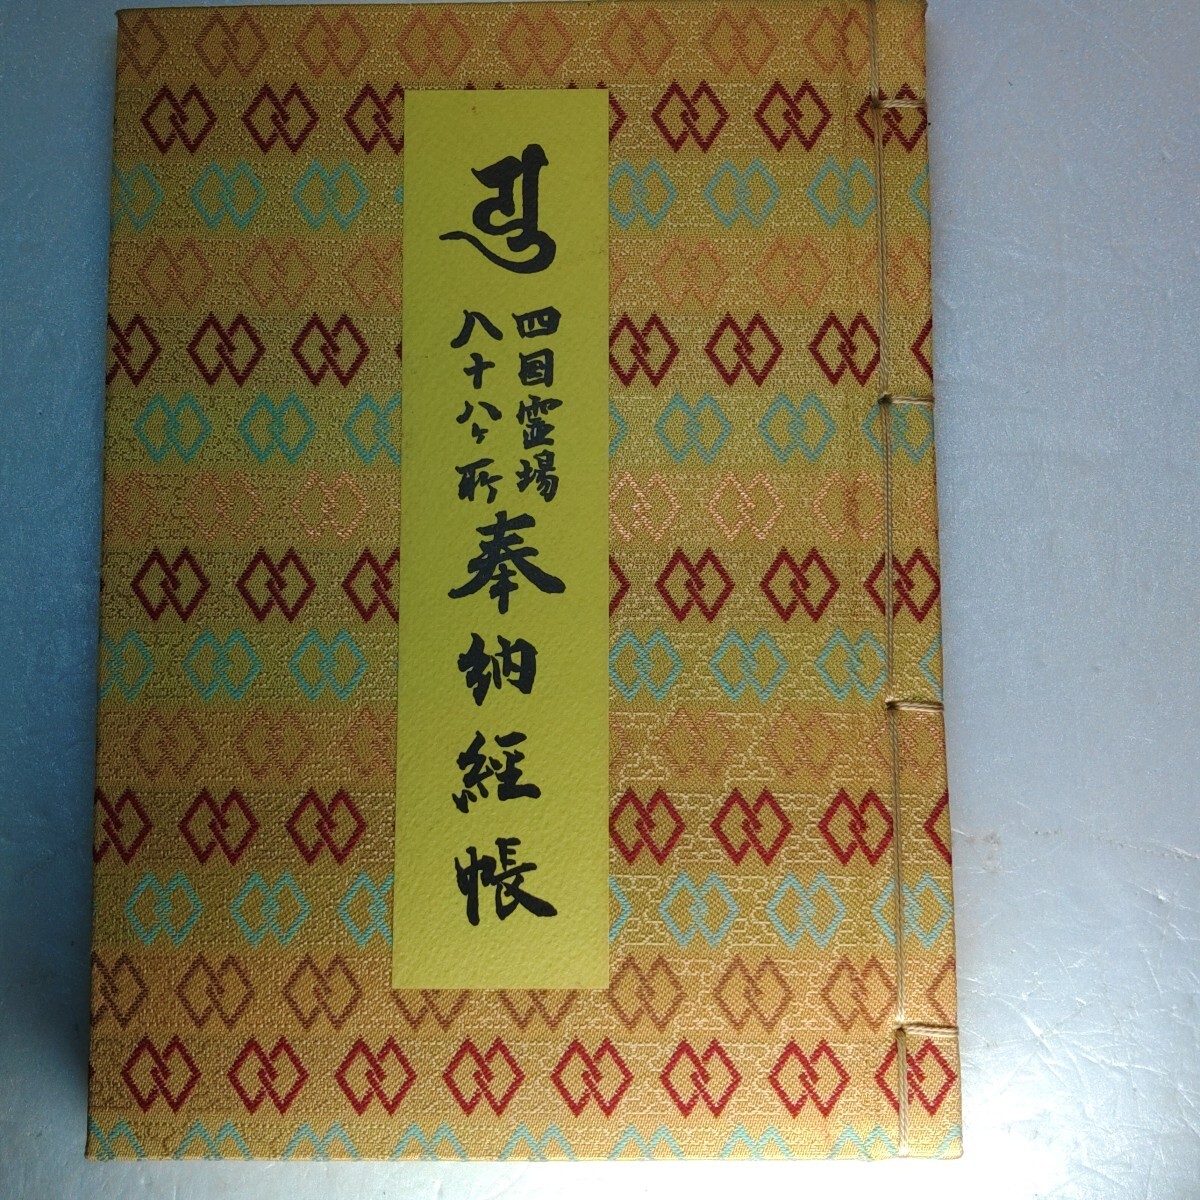 四国霊場
八十八ヶ所
奉納経帳